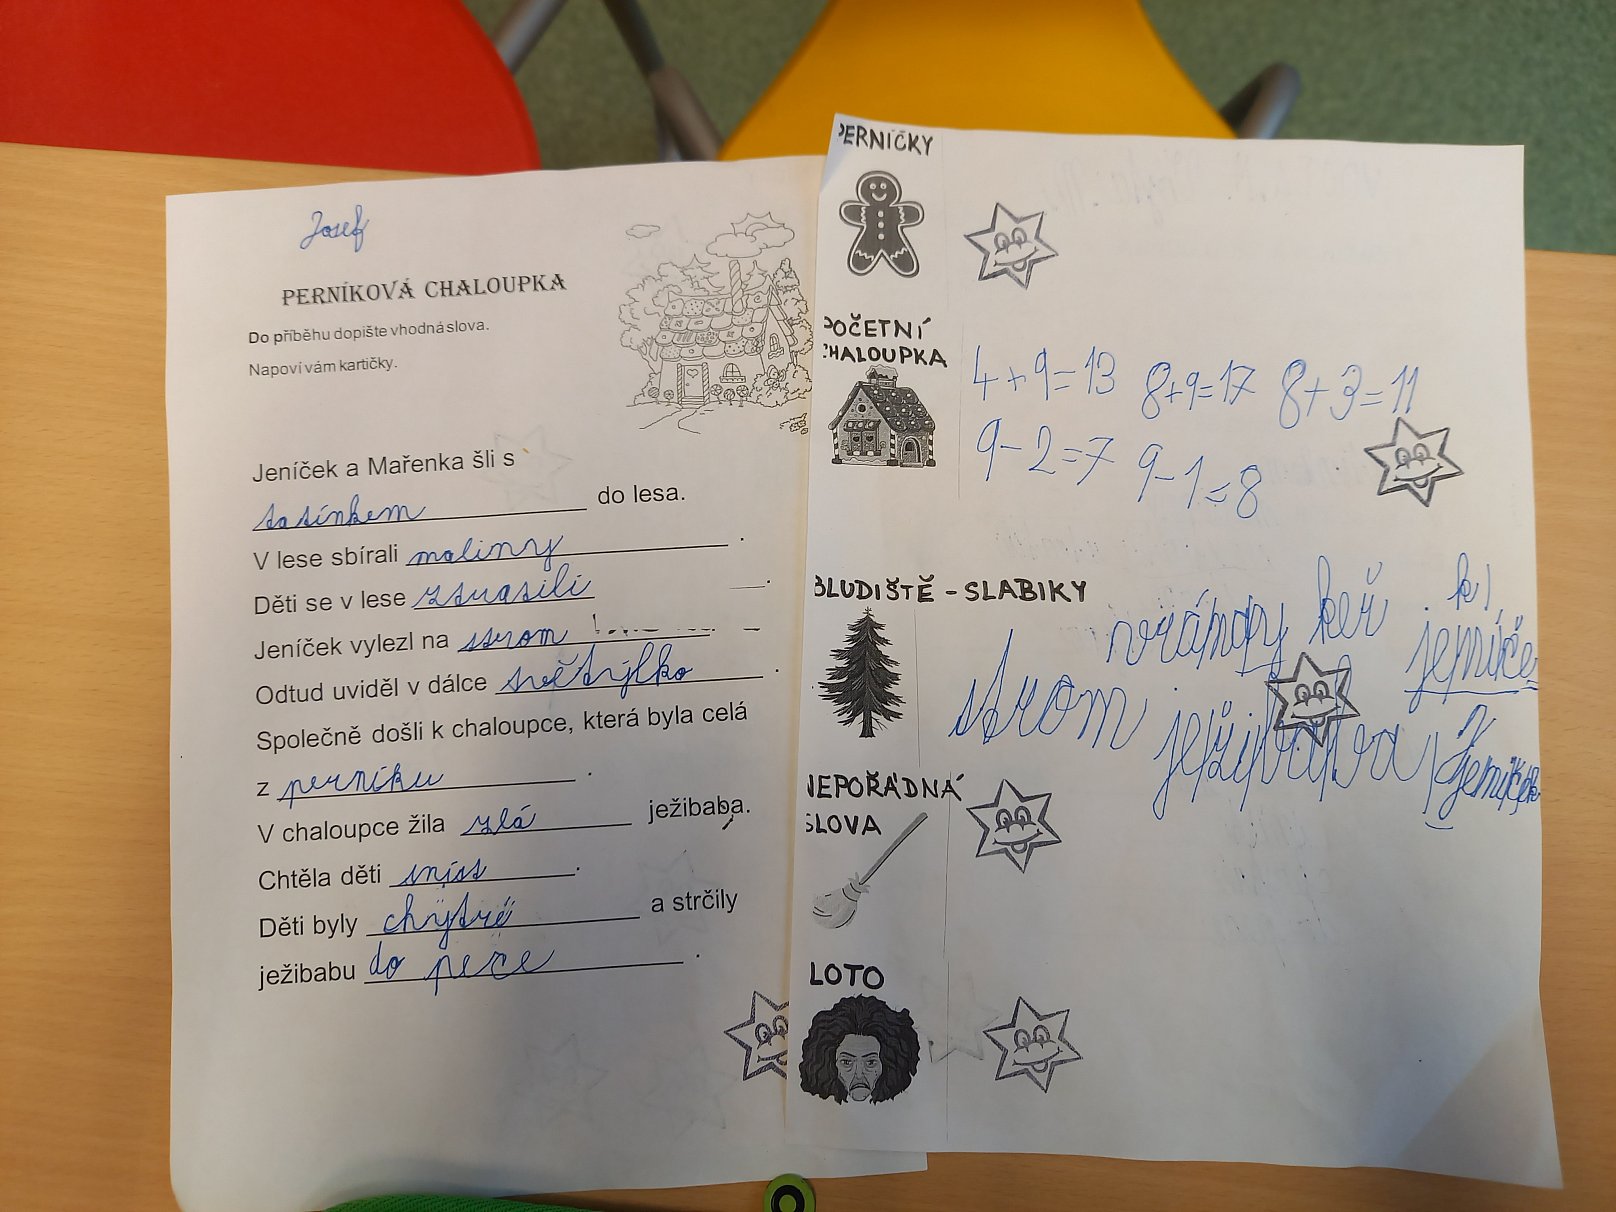 Josef
PERNÍKOVÁ CHALOUPKA
Do příběhu dopište vhodná slova.
Napoví vám kartičky.
Jeníček a Mařenka šli s
tatínkem do lesa.
V lese sbírali maliny .
Děti se v lese ztratili .
Jeníček vylezl na strom
Odtud uviděl v dálce světýlko .
Společně došli k chaloupce, která byla celá
z perníku .
V chaloupce žila zlá ježibaba.
Chtěla děti sníst .
Děti byly chytré a strčily
ježibabu do pece .
PERNÍČKY
POČETNÍ
CHALOUPKA
4+9=13 8+9=17 8+3=11
9-2=7 9-1=8
BLUDIŠTĚ - SLABIKY
keř
strom
NEPOŘÁDNÁ
SLOVA
LOTO